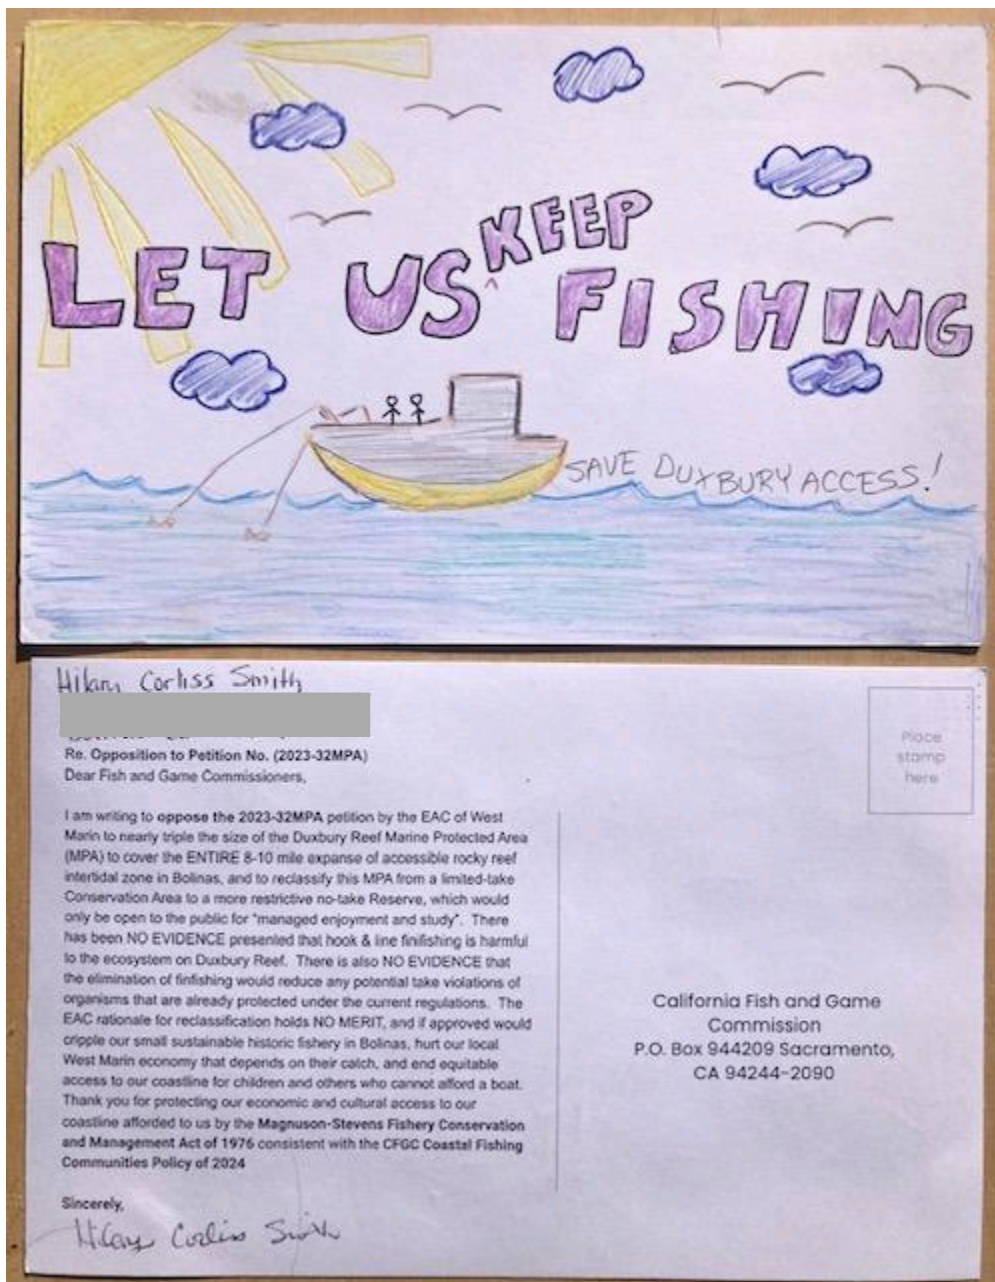 LET US KEEP FISHING
^
SAVE DUXBURY ACCESS!
Hilary Corliss Smith
Re. Opposition to Petition No. (2023-32MPA)
Dear Fish and Game Commissioners,
I am writing to oppose the 2023-32MPA petition by the EAC of West
Marin to nearly triple the size of the Duxbury Reef Marine Protected Area
(MPA) to cover the ENTIRE 8-10 mile expanse of accessible rocky reef
intertidal zone in Bolinas, and to reclassify this MPA from a limited-take
Conservation Area to a more restrictive no-take Reserve, which would
only be open to the public for "managed enjoyment and study". There
has been NO EVIDENCE presented that hook & line finifishing is harmful
to the ecosystem on Duxbury Reef. There is also NO EVIDENCE that
the elimination of finfishing would reduce any potential take violations of
organisms that are already protected under the current regulations. The
EAC rationale for reclassification holds NO MERIT, and if approved would
cripple our small sustainable historic fishery in Bolinas, hurt our local
West Marin economy that depends on their catch, and end equitable
access to our coastline for children and others who cannot afford a boat.
Thank you for protecting our economic and cultural access to our
coastline afforded to us by the Magnuson-Stevens Fishery Conservation
and Management Act of 1976 consistent with the CFGC Coastal Fishing
Communities Policy of 2024
Sincerely,
Hilary Corliss Smith
Place
stamp
here
California Fish and Game
Commission
P.O. Box 944209 Sacramento,
CA 94244-2090